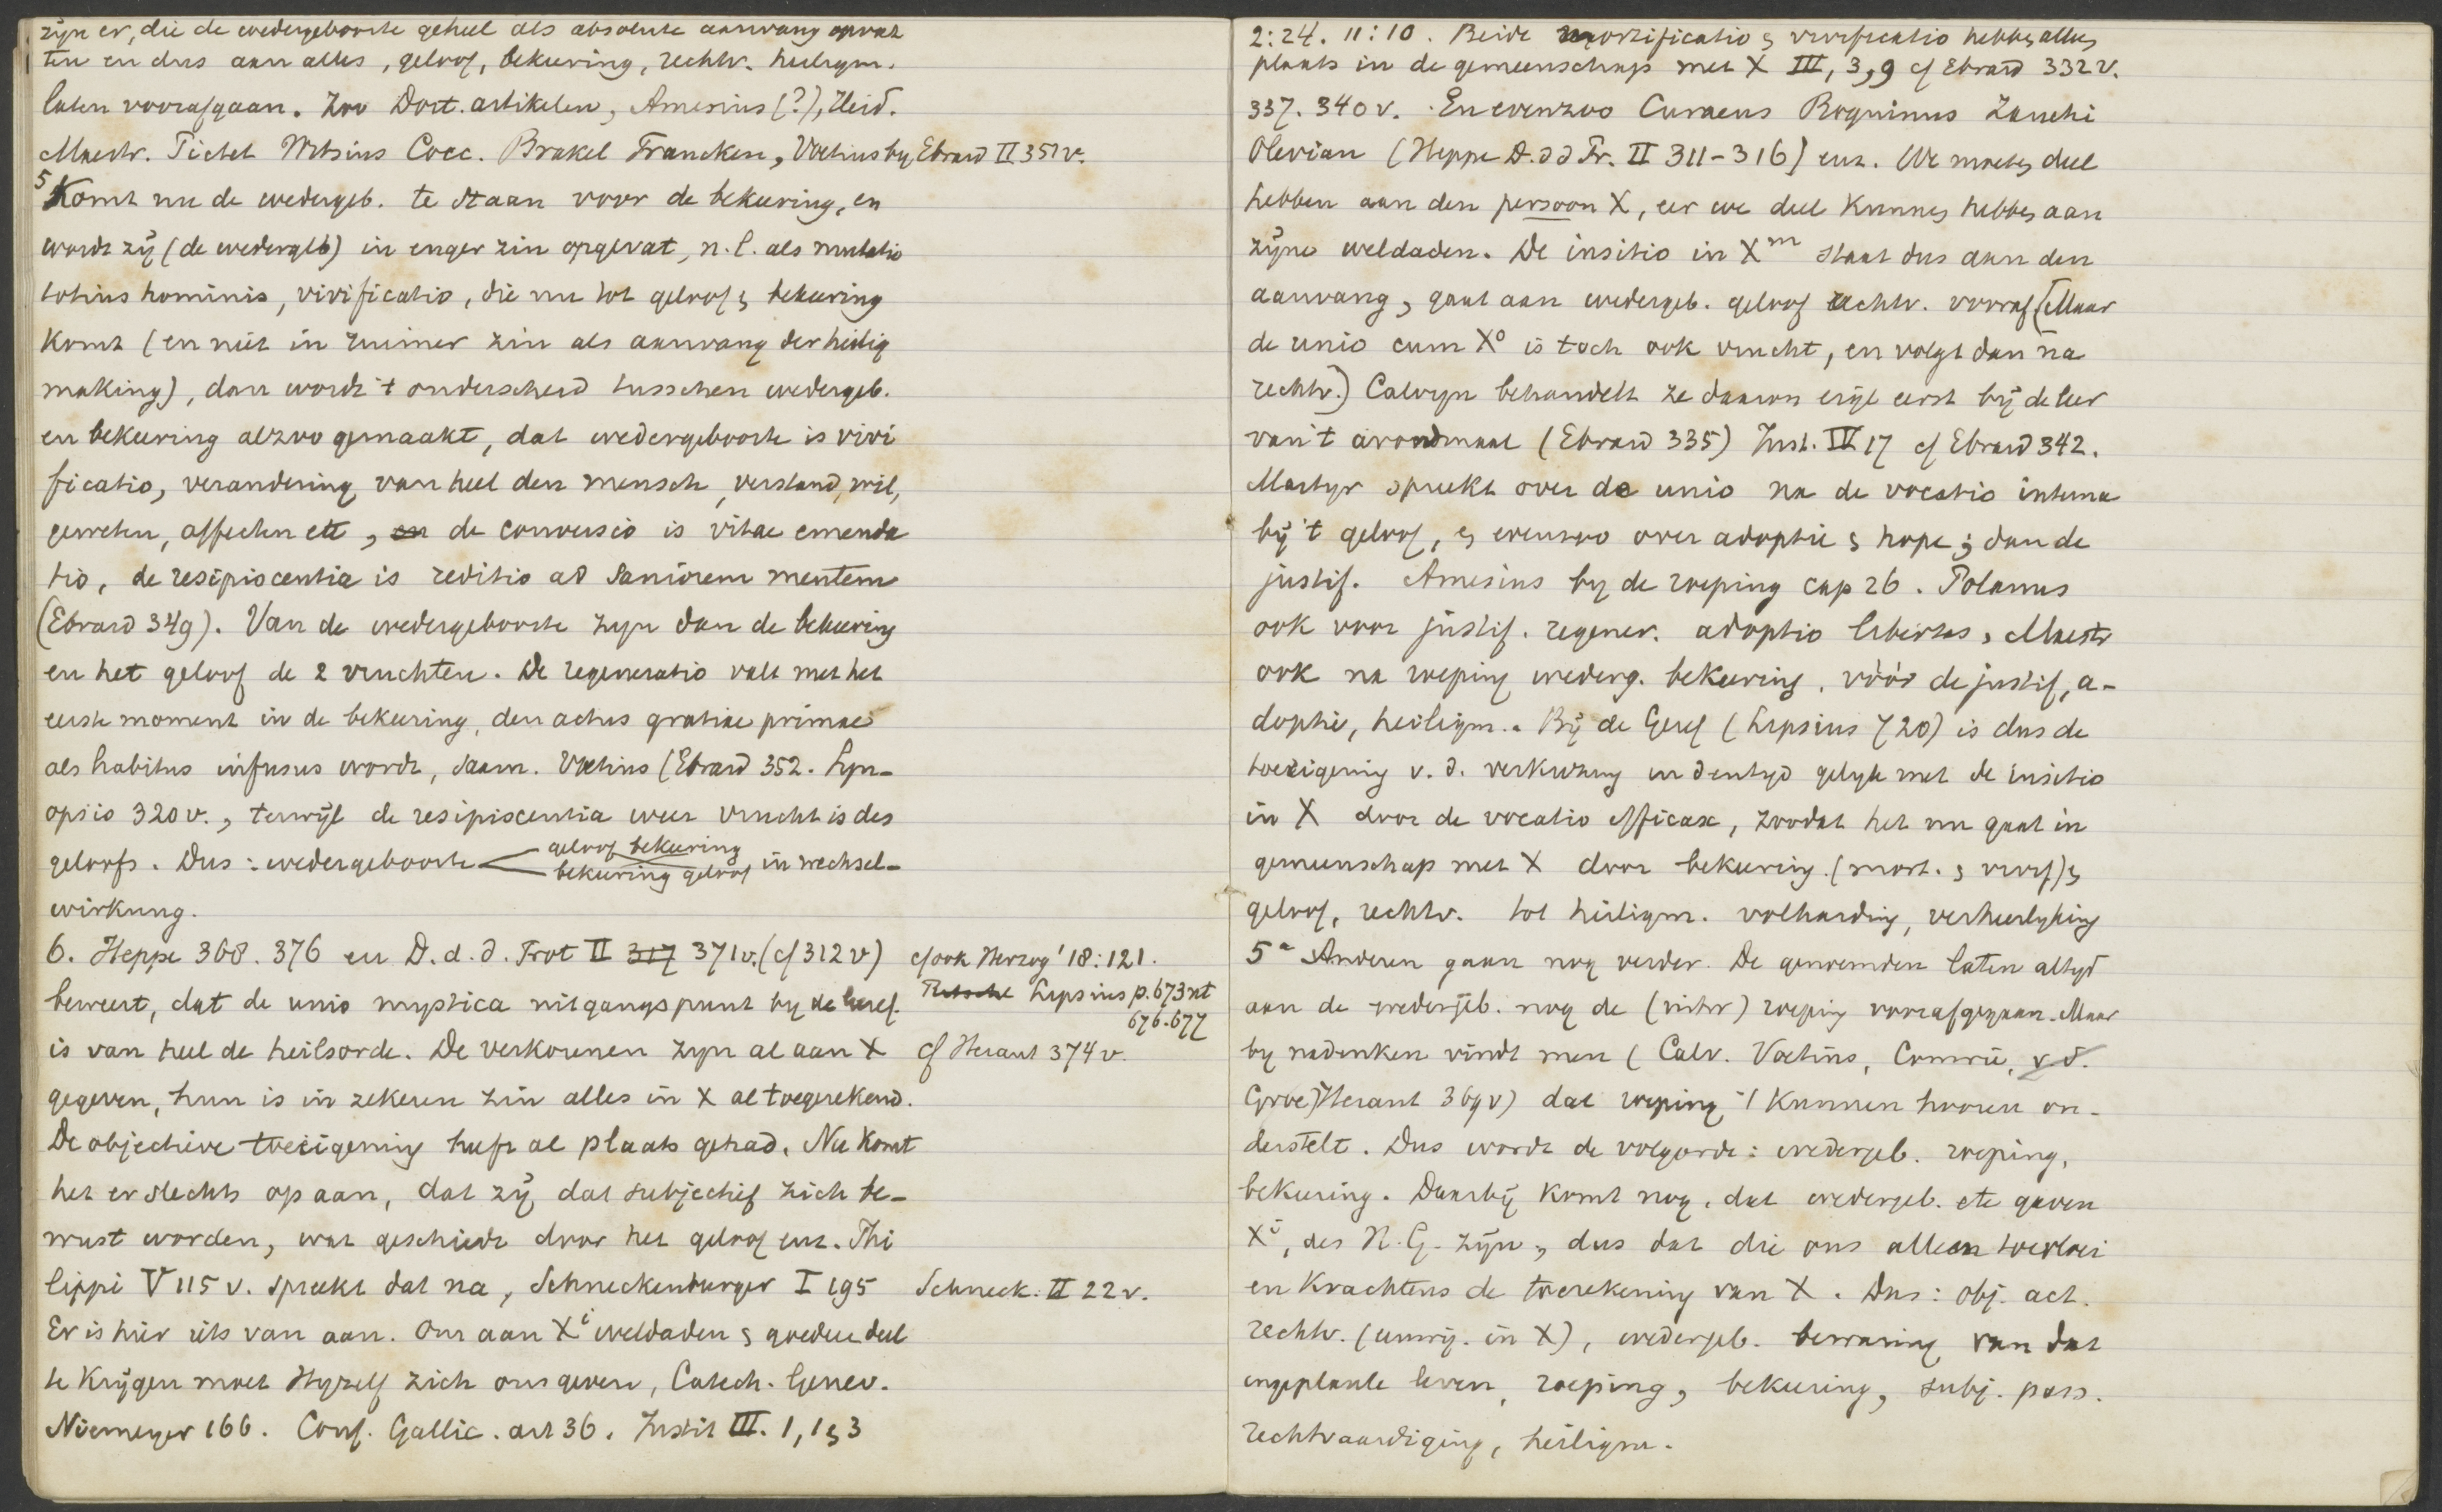 zijn er, die de wedergeboorte geheel als absolute aanvang opvat
ten en dus aan alles, geloof, bekeering, rechtv. heiligm.
laten voorafgaan. Zoo Dort. artikelen, Amesius (?), Heid.
Maestr. Pictet Witsius Cocc. Brakel Francken, Voetius by Ebrard II 351 v.
5 Komt nu de wedergeb. te staan voor de bekeering, en
wordt zij (de wedergeb) in enger zin opgevat, n.l. als mutatio
totius hominis, vivificatio, die nu tot geloof & bekeering
komt (en niet in ruimer zin als aanvang der heilig
making), dan wordt 't onderscheid tusschen wedergeb.
en bekeering alzoo gemaakt, dat wedergeboorte is vivi
ficatio, verandering van heel den mensch, verstand, wil,
geweten, affecten etc, en de conversio is vitae emenda
tio, de resipiscentia is reditio ad saniorem mentem
(Ebrard 349). Van de wedergeboorte zijn dan de bekeering
en het geloof de 2 vruchten. De regeneratio valt met het
eerste moment in de bekeering, den actus gratiae primae
als habitus infusus wordt, saam. Voetius (Ebrard 352. Syn-
opsis 320 v., terwijl de resipiscentia weer vrucht is des
geloofs. Dus: wedergeboorte geloof bekeering
bekeering geloof in wechsel-
wirkung.
6. Heppe 368. 376 en D. d. d. Prot II 317 371 v. (cf 312 v) cf ook Herzog' 18:121.
beweert, dat de unio mystica uitgangspunt by de Geref. Lipsius p. 673 nt
676. 677
is van heel de heilsorde. De verkorenen zyn al aan X cf Heraut 374 v.
gegeven, hun is in zekeren zin alles in X al toegerekend.
De objectieve toeëigening heeft al plaats gehad. Nu komt
het er slechts op aan, dat zij dat subjectief zich be-
wust worden, wat geschiedt door het geloof enz. Phi
lippi V 115 v. spreekt dat na, Schneckenburger I 195 Schneck. II 22 v.
Er is hier iets van aan. Om aan Xi weldaden & goederen deel
te krijgen moet Hyzelf zich ons geven, Catech. Genev.
Niemeyer 166. Conf. Gallic. art 36. Instit III. 1, 1 & 3
2:24. 11:10. Beide mortificatio & vivificatio hebben alleen
plaats in de gemeenschap met X III, 3, 9 cf Ebrard 332 v.
337. 340 v. En evenzoo Curaeus Boquinus Zanchi
Olevian (Heppe D. d d Pr. II 311-316) enz. We moeten deel
hebben aan den persoon X, eer we deel kunnen hebben aan
zijne weldaden. De insitio in Xm staat dus aan den
aanvang, gaat aan wedergeb. geloof rechtv. vooraf (Maar
de unio cum Xo is toch ook vrucht, en volgt dan na
rechtv.) Calvyn behandelt ze daarom eigl eerst bij de leer
van 't avondmaal (Ebrard 335) Inst. IV 17 cf Ebrard 342.
Martyr spreekt over de unio na de vocatio interna
bij 't geloof, & evenzoo over adoptie & hope; dan de
justif. Amesius by de roeping cap 26. Polanus
ook voor justif. regener. adoptio libertas, Maestr
ook na roeping wederg. bekeering, vóór de justif, a-
doptie, heiligm. Bij de Geref (Lipsius 720) is dus de
toeëigening v. d. verkiezing in den tyd gelyk met de insitio
in X door de vocatio efficax, zoodat het nu gaat in
gemeenschap met X door bekeering (mort. & vivif) &
geloof, rechtv. tot heiligm. volharding, verheerlyking
5a Anderen gaan nog verder. De genoemden laten altyd
aan de wedergeb. nog de (uitw) roeping voorafgegaan. Maar
by nadenken vindt men (Calv. Voetius, Comrie, v d.
Groe) Heraut 369 v) dat roeping 't kunnen hooren on-
derstelt. Dus wordt de volgorde: wedergeb. roeping,
bekeering. Daarbij komt nog, dat wedergeb. etc gaven
Xi, des H. G. zijn, dus dat die ons alleen toevloei
en krachtens de toerekening van X. Dus: obj. act.
rechtv. (vrijspr. in X), wedergeb. bewaring van dat
ingeplante leven, roeping, bekeering, subj. pass.
rechtvaardiging, heiligm.